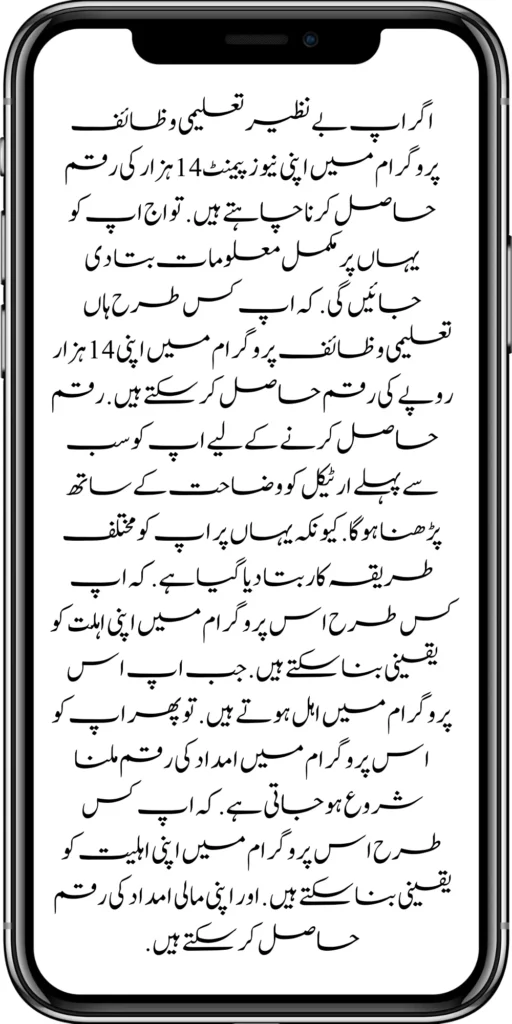 اگر اپ بے نظیر تعلیمی وظائف
پروگرام میں اپنی نیوز پیمنٹ 14 ہزار کی رقم
حاصل کرنا چاہتے ہیں. تو اج اپ کو
یہاں پر مکمل معلومات بتا دی
جائیں گی. کہ اپ کس طرح ہاں
تعلیمی وظائف پروگرام میں اپنی 14 ہزار
روپے کی رقم حاصل کر سکتے ہیں. رقم
حاصل کرنے کے لیے اپ کو سب
سے پہلے ارٹیکل کو وضاحت کے ساتھ
پڑھنا ہوگا. کیونکہ یہاں پر اپ کو مختلف
طریقہ کار بتا دیا گیا ہے. کہ اپ
کس طرح اس پروگرام میں اپنی اہلت کو
یقینی بنا سکتے ہیں. جب اپ اس
پروگرام میں اہل ہوتے ہیں. تو پھر اپ کو
اس پروگرام میں امداد کی رقم ملنا
شروع ہو جاتی ہے. کہ اپ کس
طرح اس پروگرام میں اپنی اہلیت کو
یقینی بنا سکتے ہیں. اور اپنی مالی امداد کی رقم
حاصل کر سکتے ہیں.